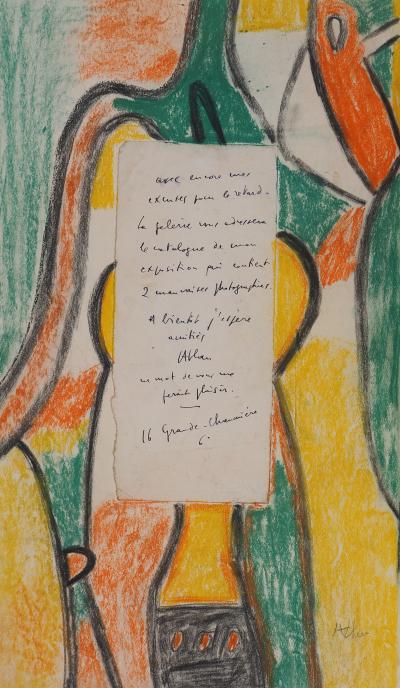 avec encore mes
excuses pour le retard -
la galerie vous adressera
le catalogue de mon
exposition qui contient
2 mauvaises photographies.
A bientôt j'espère
amitiés
Atlan
un mot de vous me
ferait plaisir.
16 Grande-Chaumière
6e
Atlan